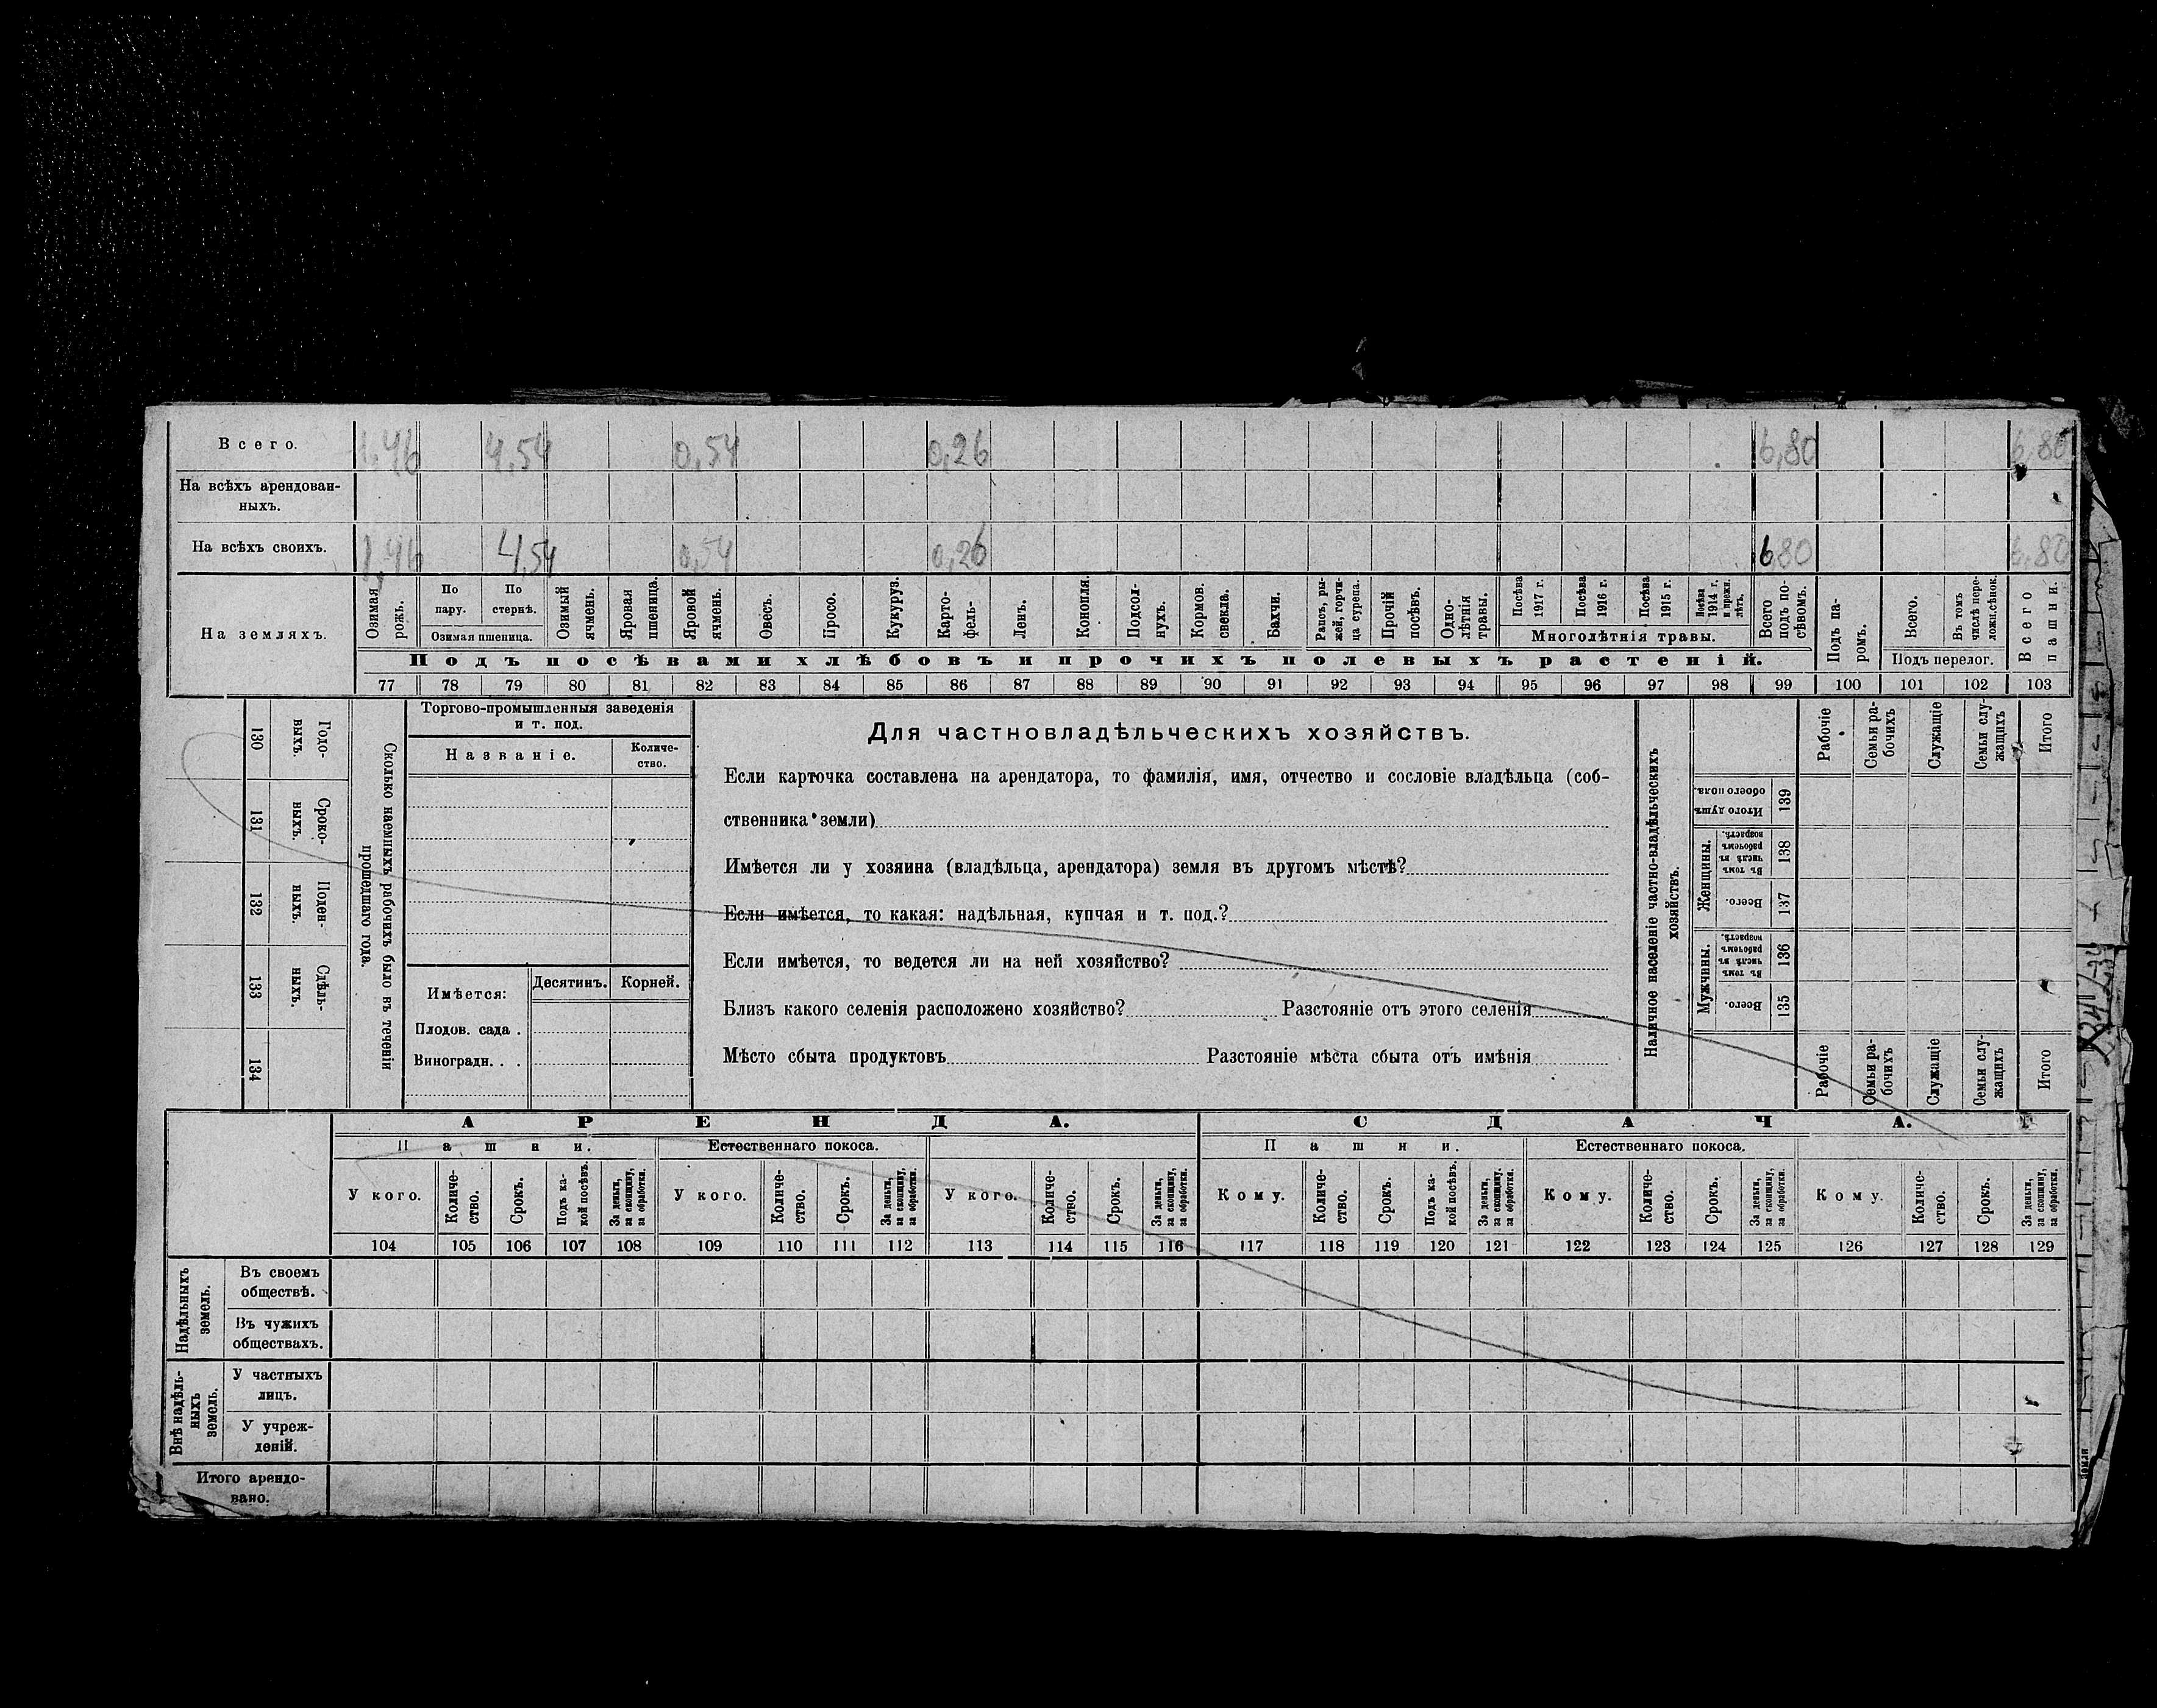 Всего. 1,46 4,54 0,54 0,26 6,80 6,80
На всѣхъ арендован-
ныхъ.
На всѣхъ своихъ. 1,46 4,54 0,54 0,26 6 80 6,80
На земляхъ.
Озимая рожь.
По пару.
По стернѣ.
Озимая пшеница.
Озимый ячмень.
Яровая пшеница.
Яровой ячмень.
Овесъ.
Просо.
Кукуруз.
Карто-
фель.
Ленъ.
Конопля.
Подсол-
нухъ.
Кормов. свекла.
Бахчи.
Рапсъ, ры-
жей, горчи-
ца сурепа.
Прочій посѣвъ.
Одно-
лѣтнія травы.
Посѣва 1917 г.
Посѣва 1916 г.
Посѣва 1915 г.
Посѣва 1914 г. и прежн. лѣтъ.
Многолѣтнія травы.
Всего подъ по-
сѣвомъ.
Подъ па-
ромъ.
Всего.
Въ томъ числѣ пере-
ложн.сѣнок.
Подъ перелог.
Всего пашни.
Подъ посѣвами хлѣбовъ и прочихъ полевыхъ растеній.
77 78 79 80 81 82 83 84 85 86 87 88 89 90 91 92 93 94 95 96 97 98 99 100 101 102 103
130 Годо-
выхъ.
131 Сроко-
выхъ.
132 Поден-
ныхъ.
133 Сдѣль-
ныхъ.
134
Сколько наемныхъ рабочихъ было въ теченіи
прошедшаго года.
Торгово-промышленныя заведенія
и т. под.
Названіе.
Количе-
ство.
Имѣется:
Десятинъ. Корней.
Плодов. сада .
Виноградн. . .
Для частновладѣльческихъ хозяйствъ.
Если карточка составлена на арендатора, то фамилія, имя, отчество и сословіе владѣльца (соб-
ственника земли)
Имѣется ли у хозяина (владѣльца, арендатора) земля въ другомъ мѣстѣ?
Если имѣется, то какая: надѣльная, купчая и т. под.?
Если имѣется, то ведется ли на ней хозяйство?
Близъ какого селенія расположено хозяйство? Разстояніе отъ этого селенія
Мѣсто сбыта продуктовъ Разстояніе мѣста сбыта отъ имѣнія
Наличное населеніе частно-владѣльческихъ
хозяйствъ.
Рабочіе
Семьи ра-
бочихъ
Служащіе
Семьи слу-
жащихъ
Итого
Итого душъ обоего пола. 139
Женщины.
Въ томъ числѣ въ рабочемъ возрастѣ. 138
Всего. 137
Мужчины.
Въ томъ числѣ въ рабочемъ возрастѣ. 136
Всего. 135
Рабочіе
Семьи ра-
бочихъ
Служащіе
Семьи слу-
жащихъ
Итого
АРЕНДА. СДАЧА.
Пашни. Естественнаго покоса. Пашни. Естественнаго покоса.
У кого.
Количе-
ство.
Срокъ.
Подъ ка-
кой посѣвъ.
За деньги, за скопщину, за обработки.
У кого.
Количе-
ство.
Срокъ.
За деньги, за скопщину, за обработки.
У кого.
Количе-
ство.
Срокъ.
За деньги, за скопщину, за обработки.
Кому.
Количе-
ство.
Срокъ.
Подъ ка-
кой посѣвъ.
За деньги, за скопщину, за обработки.
Кому.
Количе-
ство.
Срокъ.
За деньги, за скопщину, за обработки.
Кому.
Количе-
ство.
Срокъ.
За деньги, за скопщину, за обработки.
104 105 106 107 108 109 110 111 112 113 114 115 116 117 118 119 120 121 122 123 124 125 126 127 128 129
Надѣльныхъ
земель.
Въ своемъ
обществѣ.
Въ чужихъ
обществахъ.
Внѣ надѣль-
ныхъ
земель.
У частныхъ
лицъ.
У учреж-
деній.
Итого арендо-
вано.